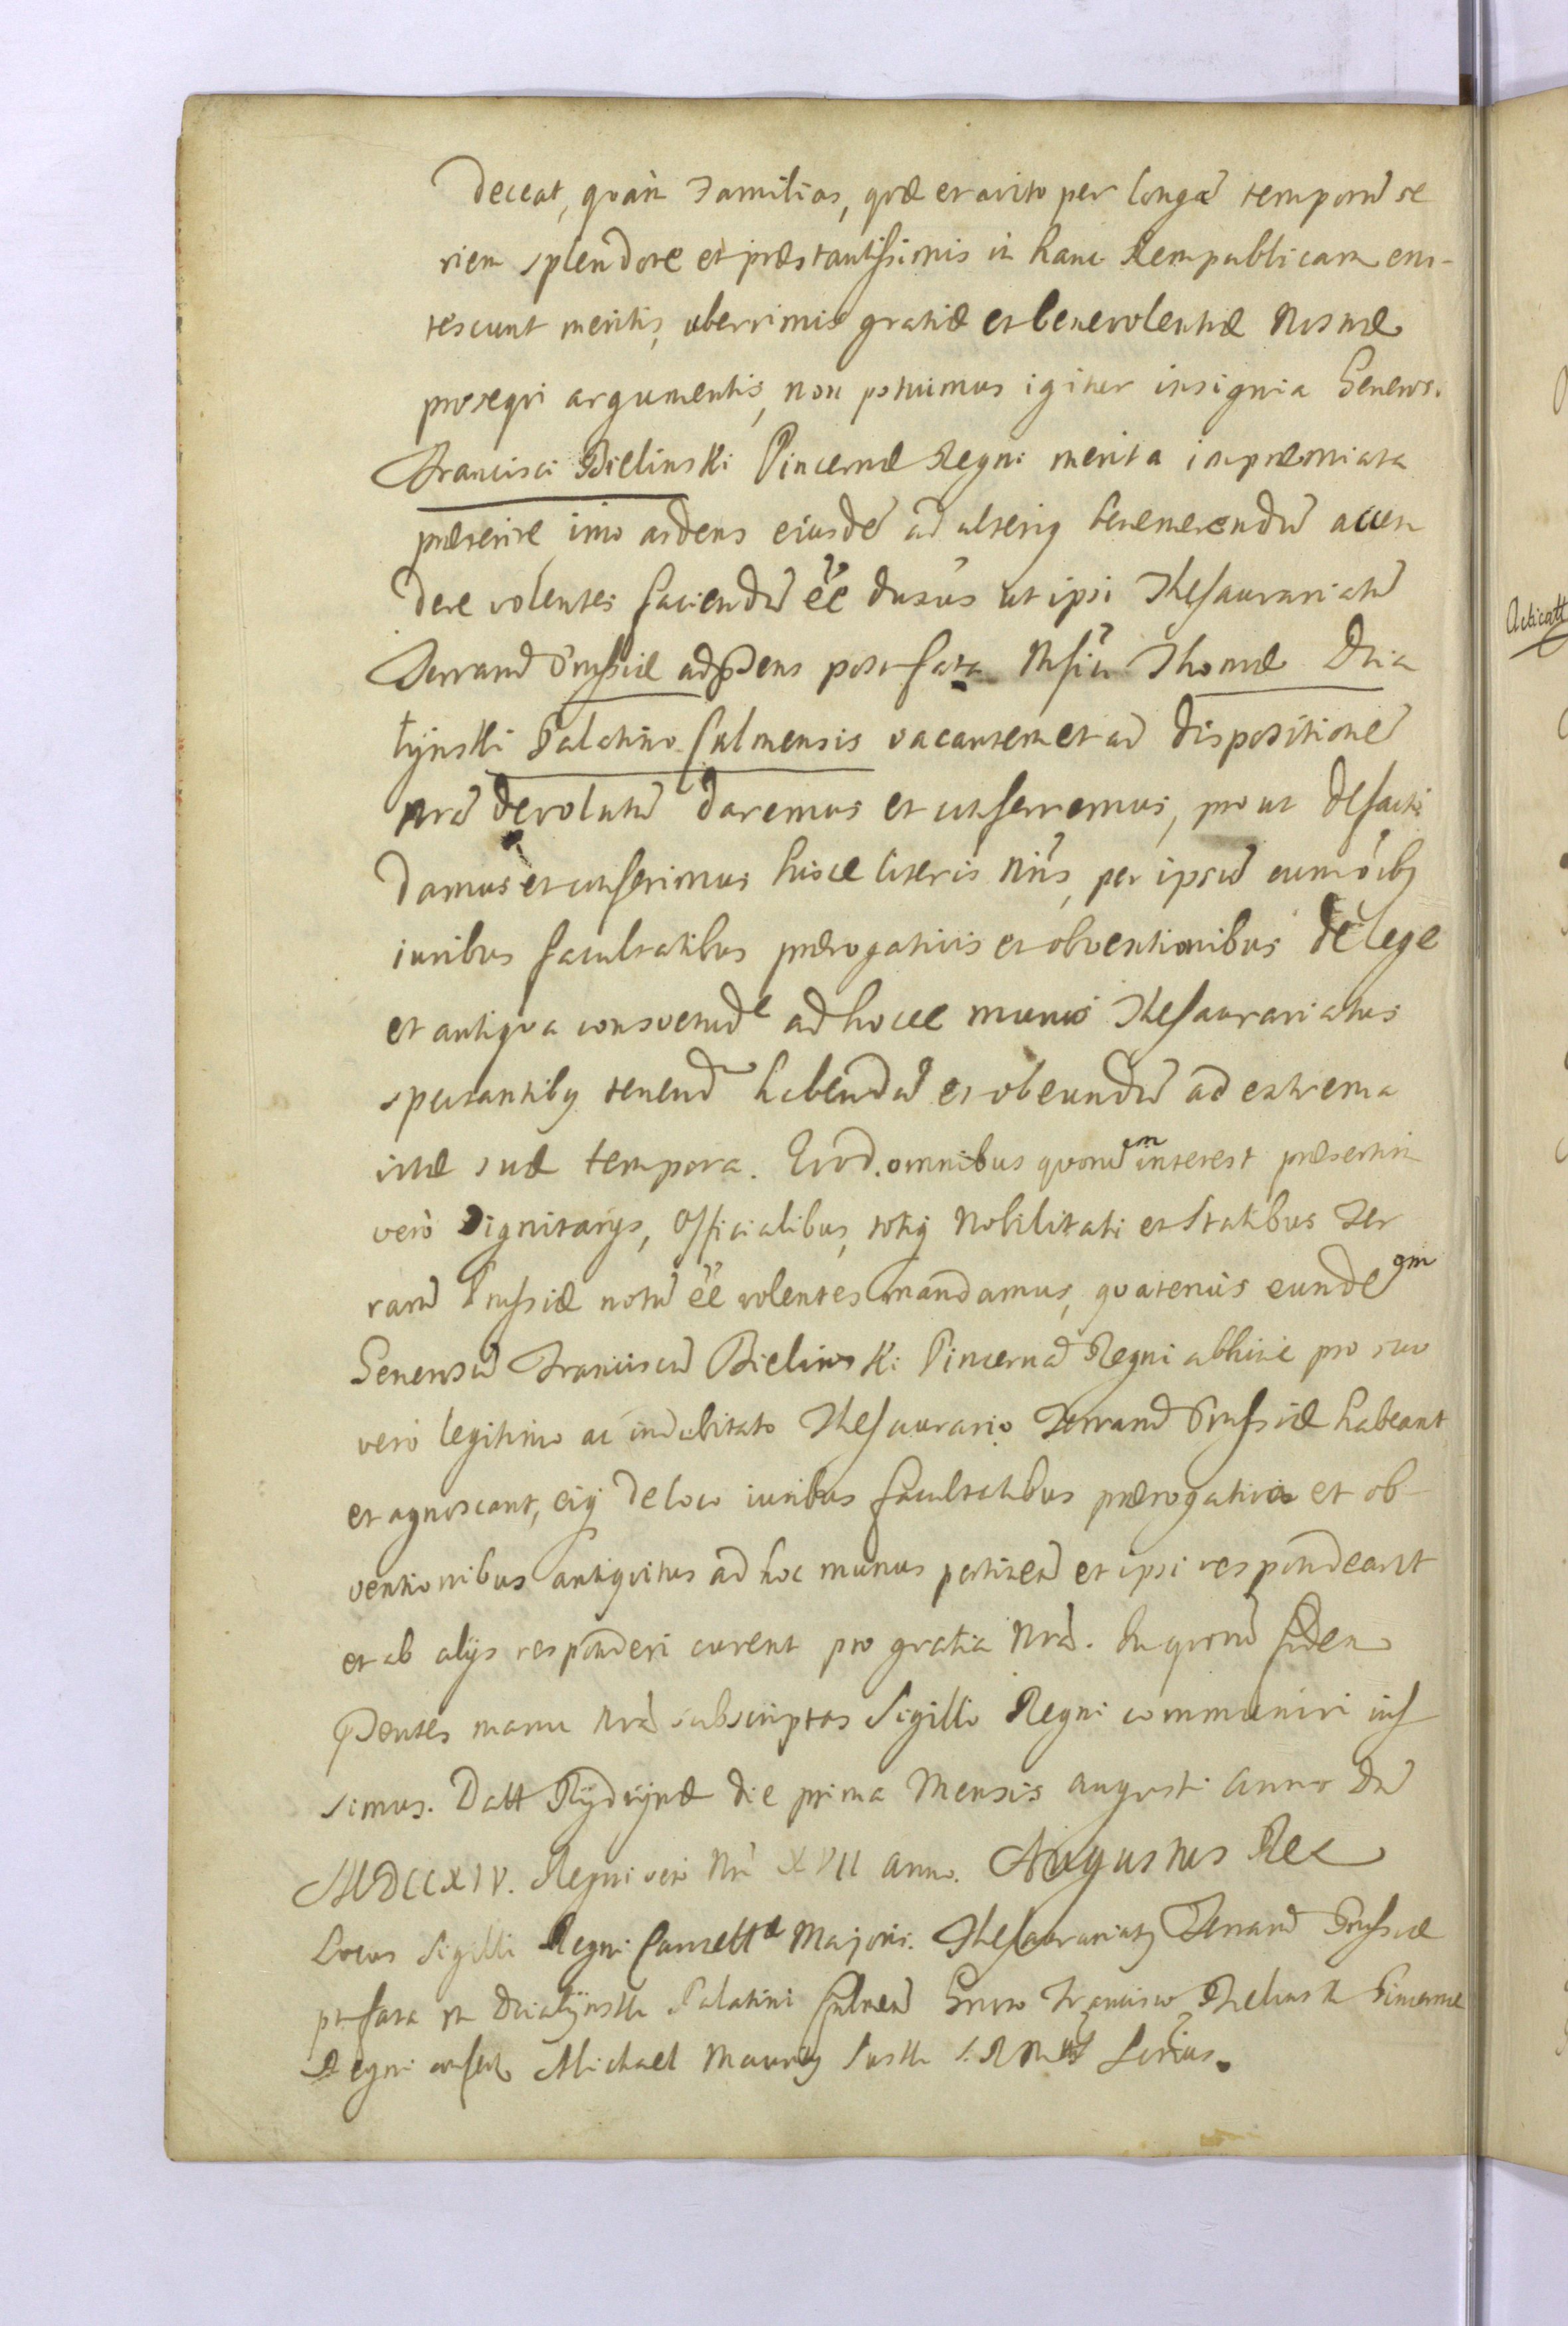 deceat, quàm Familias, quæ et avito per longã temporũ se
riem splendore et præstantissimis in hanc Rempublicam eni-
tescunt meritis, uberrimis gratiæ et benevolentiæ Nostræ
prosequi argumentis, non potuimus igitur insignia Generos.
Francisci Bielinski Pincernæ Regni merita impræmiata
præterire, imo ardens eiusdẽ ad ulterig benemerendũ accen
dere volentes faciendũ ẽẽ duxûs ut ipsi Thesaurariatũ
Terrarũ Prussiæ ad præsens post fata Mfici Thomæ Dzia
łÿnski Palatino Culmensis vacantem et ad dispositionẽ
nrã devolutũ daremus et conferremus, pro ut de facto
damus et conferimus hisce literis Nris, per ipsũ cum oĩbg
iuribus facultatibus prærogativis et obventionibus de lege
et antiqua consvetude ad hocce munus Thesaurariatus
spectantibg tenend habendũ et obeundũ ad extrema
vitæ suæ tempora. Quod. omnibus quorũ interest præsertim
verò Dignitarÿs, Officialibus, totiq Nobilitati et Statibus Ter
rarũ Prussiæ notũ ẽẽ volentes mandamus, quatenùs eundẽ gm
Generosũ Franciscũ Bielinski Pincernã Regni abhinc pro suo
vero legitimo ac indubitato Thesaurario Terrarũ Prussiæ habeant
et agnoscant, eiq de loco iuribus facultatibus prærogativis et ob
ventionibus antiquitus ad hoc munus pertinen et ipsi respondeant
et ab alÿs responderi curent pro gratia Nrã. In quorũ fidem
Præsentes manu Nrã subscriptas Sigillo Regni communiri ius
simus. Datt Rÿdzÿnæ die prima Mensis Augusti Anno Dñi
MDCCXIV. Regni vero Nri XVII anno. Augustus Rex
Locus Sigilli Regni Cancellæ Majoris. Thesaurariatg Terrarũ Prussiæ
post fata Działÿnskі Palatini Culmen Gnroso Francisco Bielinski Pincernæ
Regni confert Michael